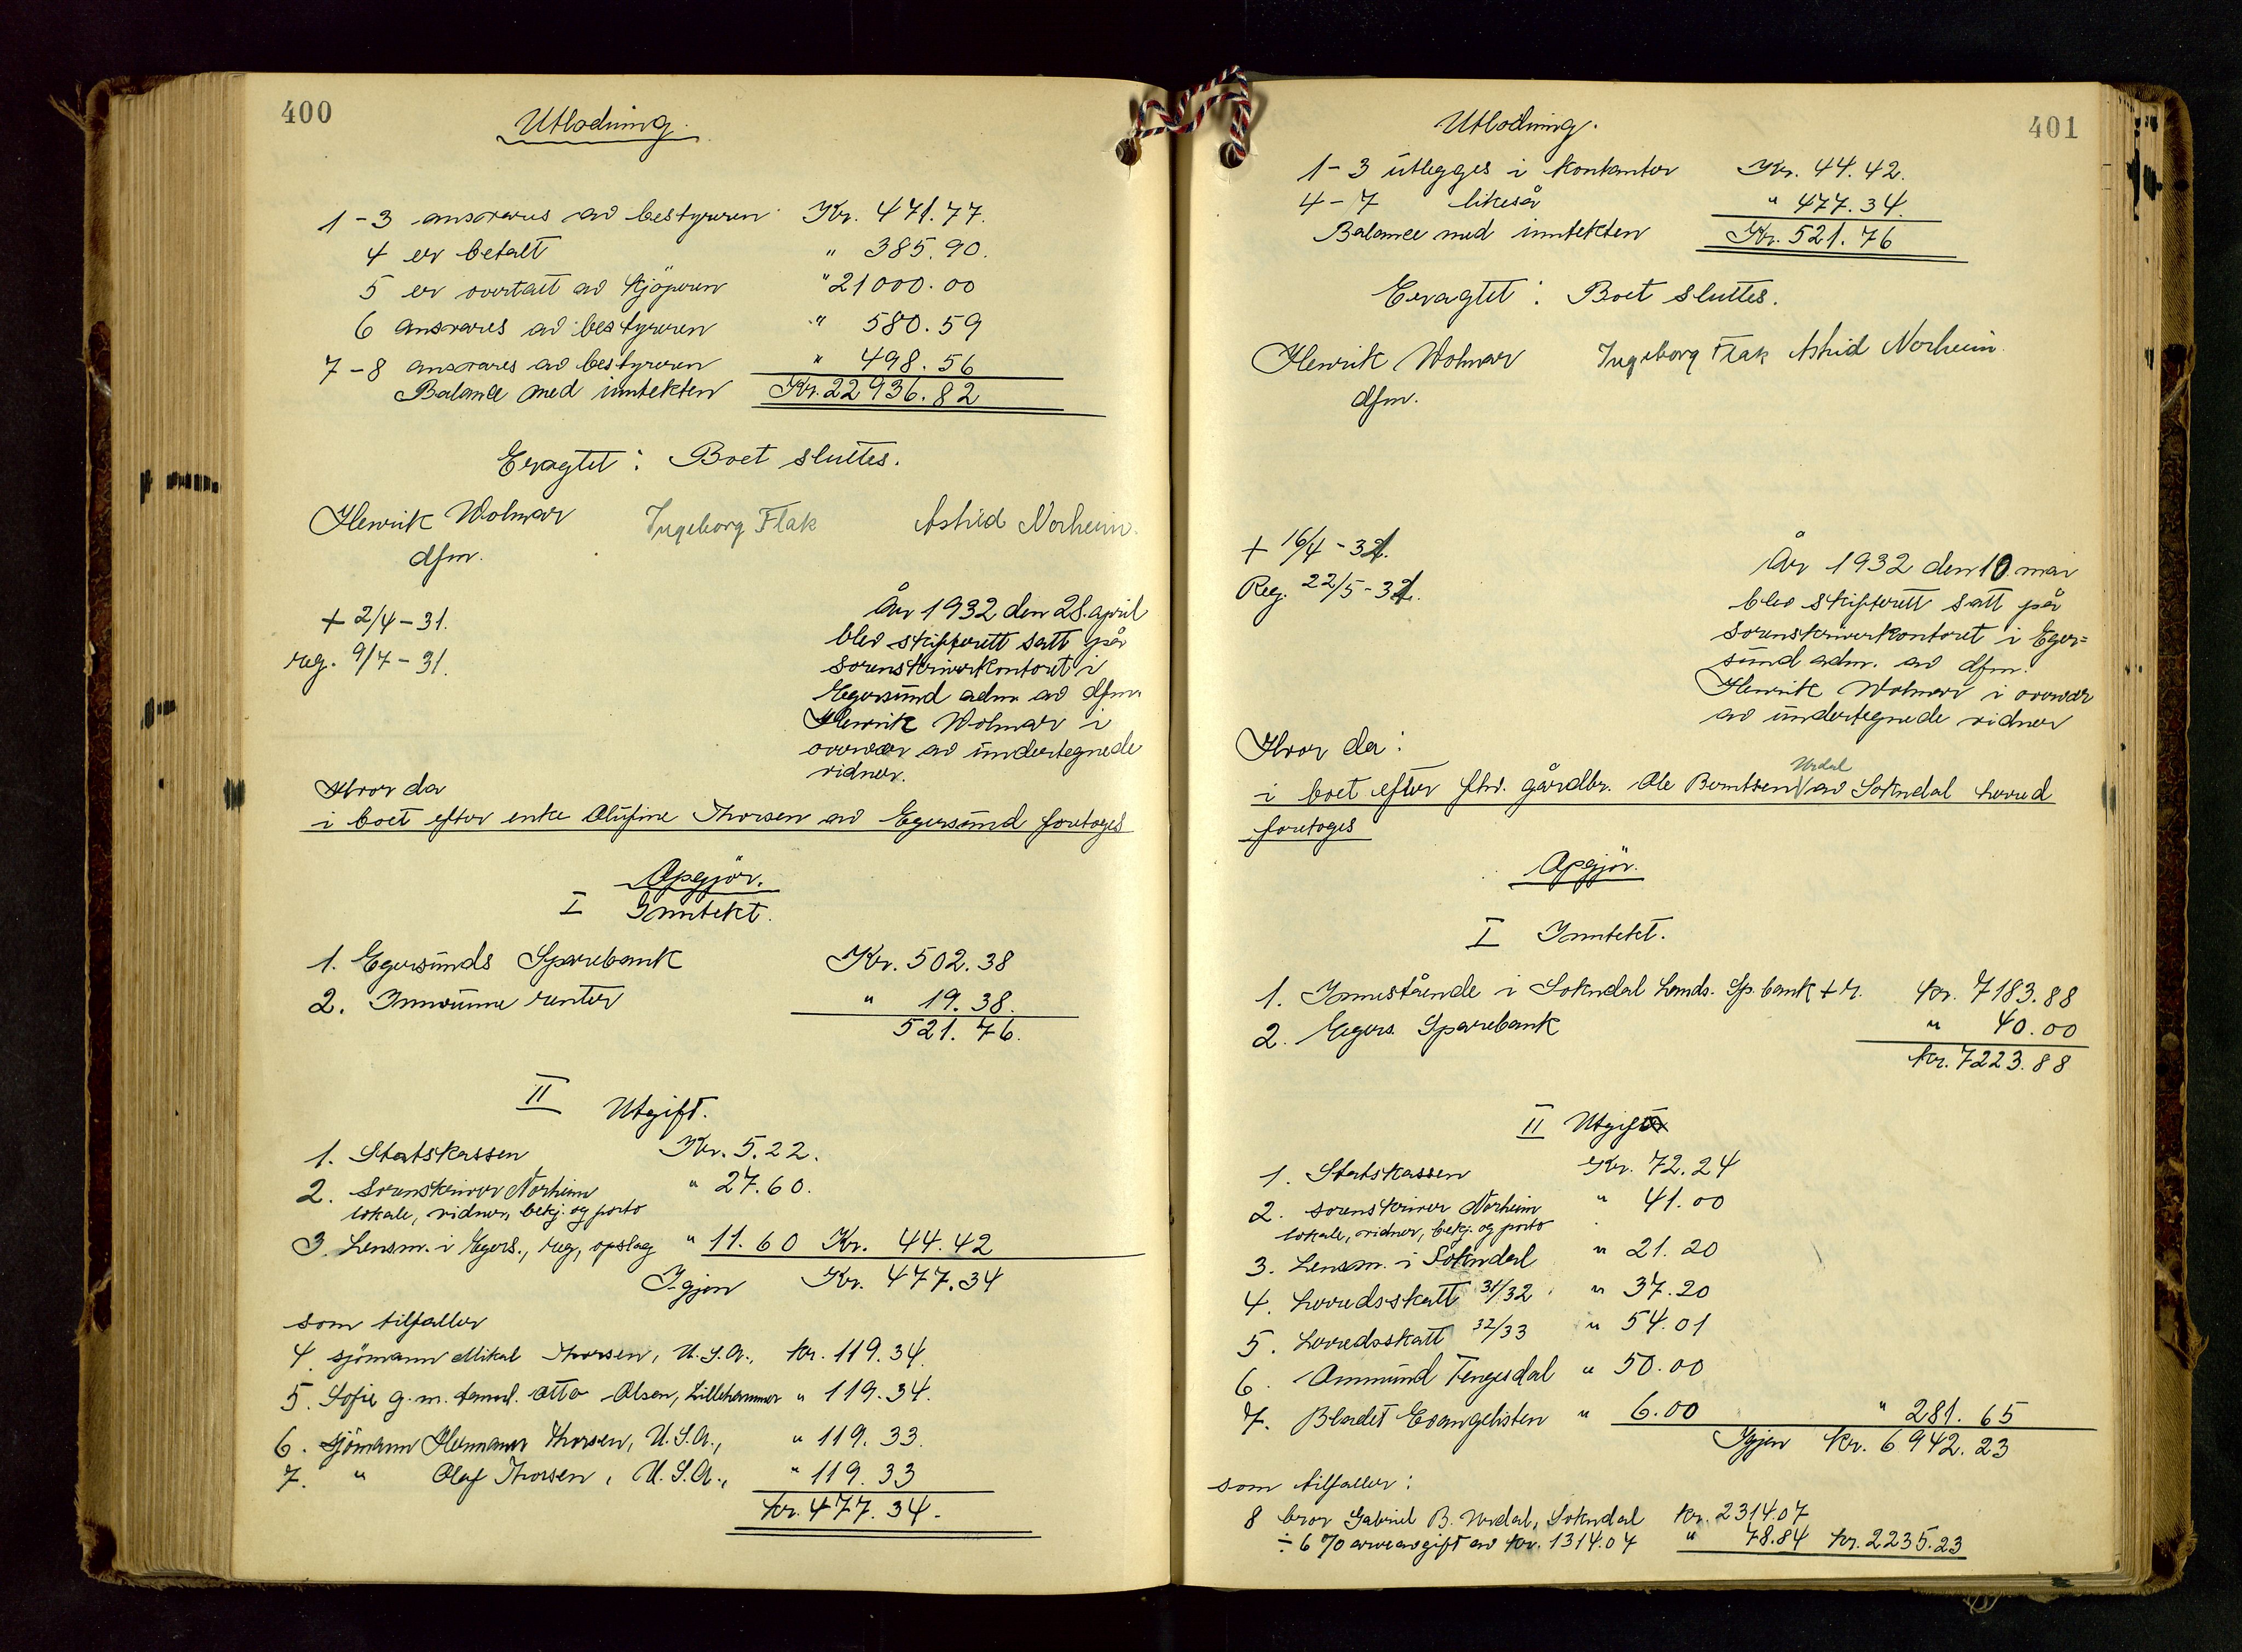 400
Utlodning.
1-3 ansvares av bestyreren Kr. 471.77.
4 er betalt " 385.90.
5 er overtatt av kjöperen " 21000.00
6 ansvares av bestyreren " 580.59
7-8 ansvares av bestyreren " 498.56
Balance med inntekten Kr. 22936.82
Eragtet: Boet sluttes.
Henrik Wolmar Ingeborg Flak Astrid Norheim.
dfm.
+ 2/4-31.
reg. 9/7-31.
År 1932 den 28. april
blev skifterett satt på
sorenskriverkontoret i
Egersund adm. av dfm.
Henrik Wolmar i
overvær av undertegnede
vidner.
Hvor da
i boet efter enke Olufine Thorsen av Egersund foretoges
Opgjör.
I Inntekt.
1. Egersunds Sparebank Kr. 502.38
2. Innvunne renter " 19.38.
521.76.
II Utgift.
1. Statskassen Kr. 5.22.
2. Sorenskriver Norheim " 27.60.
lokale, vidner, bekj. og porto
3. Lensm. i Egers., reg, opslag " 11.60 Kr. 44.42
Igjen Kr. 477.34
som tilfaller
4. sjömann Mikal Thorsen, U.S.A., kr. 119.34.
5. Sofie g.m. Otto Olsen, Lillehammer " 119.34.
6. sjömann Hermann Thorsen, U.S.A., " 119.33.
7. " Olaf Thorsen, U.S.A., " 119.33
kr. 477.34.
401
Utlodning.
1-3 utlegges i kontanter Kr. 44.42.
4-7 likeså " 477.34.
Balance med inntekten Kr. 521.76
Eragtet: Boet sluttes.
Henrik Wolmar Ingeborg Flak Astrid Norheim.
dfm.
+ 16/4-32.
Reg. 22/5-32.
År 1932 den 10. mai
blev skifterett satt på
sorenskriverkontoret i Eger=
sund adm. av dfm.
Henrik Wolmar i overvær
av undertegnede vidner
Hvor da:
Urdal
i boet efter fhv. gårdbr. Ole Berntsen av Sokndal herred
foretoges
Opgjör.
I Inntekt.
1. Innestående i Sokndal Lands. Sp.bank + r. Kr. 7183.88
2. Egers. Sparebank " 40.00
kr. 7223.88
II Utgift
1. Statskassen Kr. 72.24
2. sorenskriver Norheim " 41.00
lokale, vidner, bekj. og porto
3. Lensm. i Sokndal " 21.20
4. herredsskatt 31/32 " 37.20
5. herredsskatt 32/33 " 54.01
6. Ommund Tengesdal " 50.00
7. Bladet Evangelisten " 6.00 " 281.65
Igjen kr. 6942.23
som tilfaller:
8 bror Gabriel B. Urdal, Sokndal kr. 2314.07
÷ 6 % arveavgift av kr. 1314.07 " 78.84 kr. 2235.23